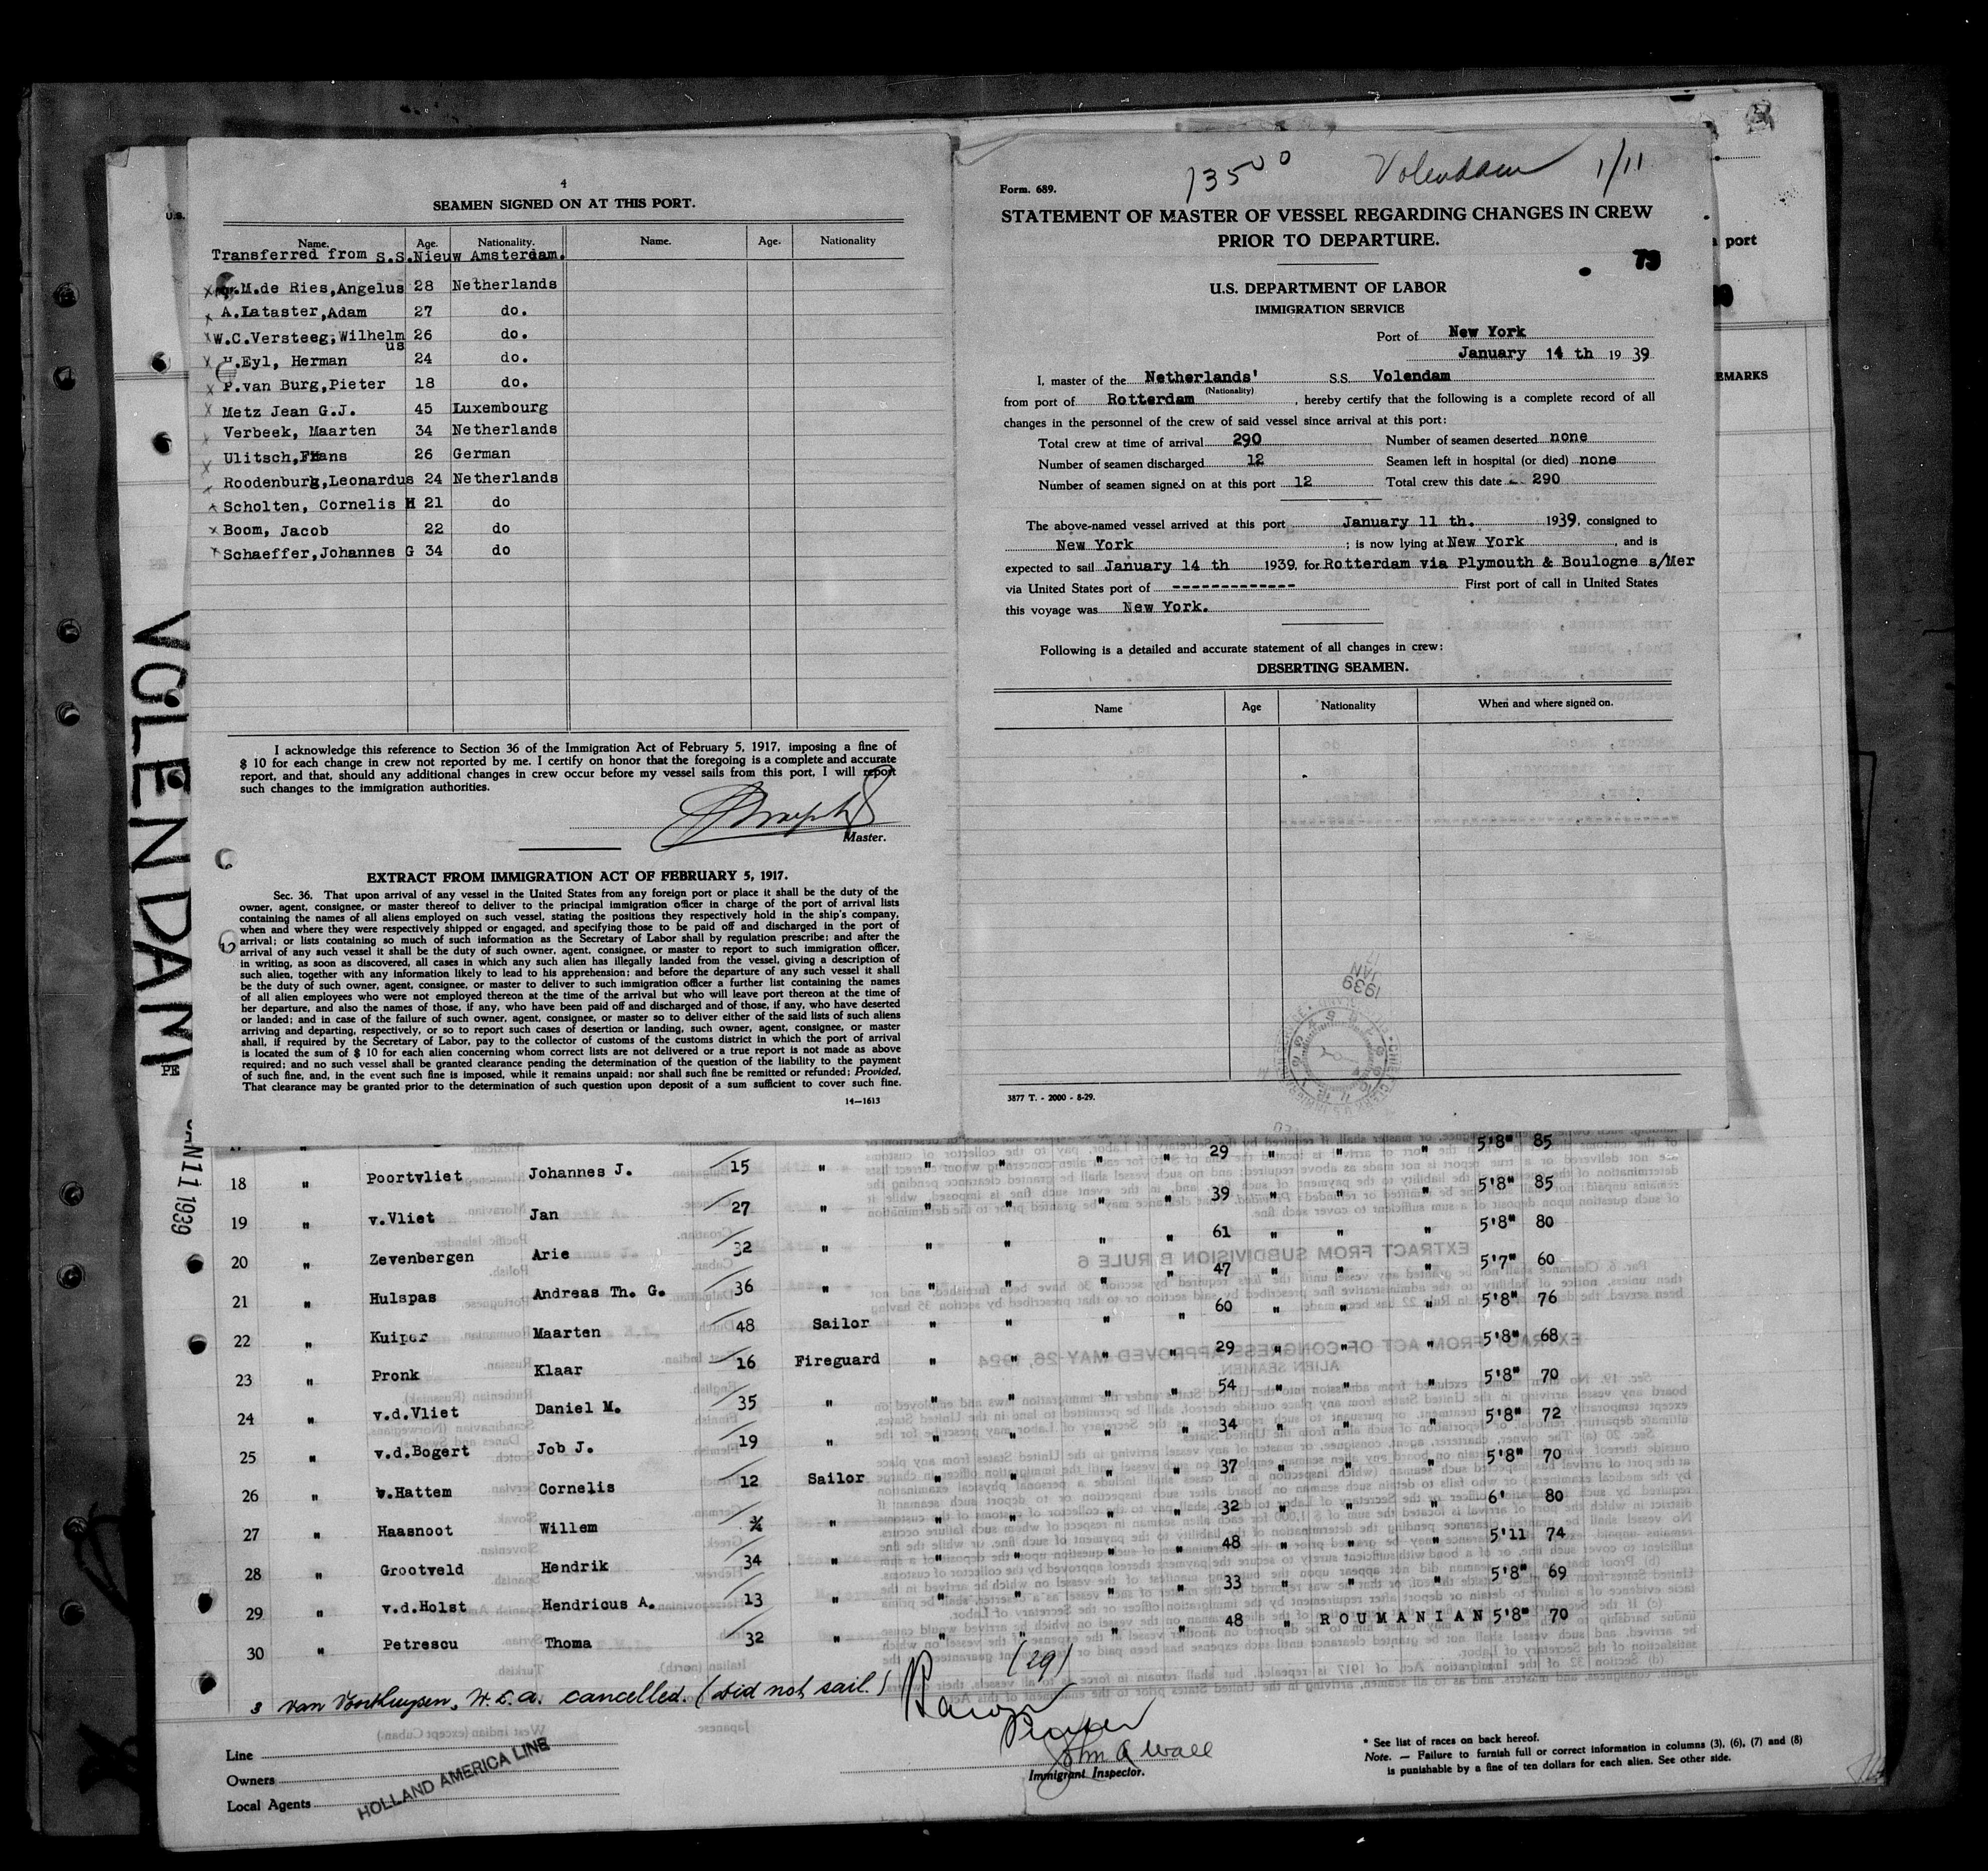 4
SEAMEN SIGNED ON AT THIS PORT.
Name. Age. Nationality. Name. Age. Nationality
Transferred from S.S.Nieuw Amsterdam.
M.de Ries,Angelus 28 Netherlands
A.Lataster,Adam 27 do.
W.C.Versteeg,Wilhelm 26 do.
us
H.Eyl, Herman 24 do.
P.van Burg,Pieter 18 do.
Metz Jean G.J. 45 Luxembourg
Verbeek, Maarten 34 Netherlands
Ulitsch,Frans 26 German
Roodenburg,Leonardus 24 Netherlands
Scholten, Cornelis H 21 do
Boom, Jacob 22 do
Schaeffer,Johannes G 34 do
I acknowledge this reference to Section 36 of the Immigration Act of February 5, 1917, imposing a fine of
$ 10 for each change in crew not reported by me. I certify on honor that the foregoing is a complete and accurate
report, and that, should any additional changes in crew occur before my vessel sails from this port, I will report
such changes to the immigration authorities.
Master.
EXTRACT FROM IMMIGRATION ACT OF FEBRUARY 5, 1917.
Sec. 36. That upon arrival of any vessel in the United States from any foreign port or place it shall be the duty of the
owner, agent, consignee, or master thereof to deliver to the principal immigration officer in charge of the port of arrival lists
containing the names of all aliens employed on such vessel, stating the positions they respectively hold in the ship's company,
when and where they were respectively shipped or engaged, and specifying those to be paid off and discharged in the port of
arrival; or lists containing so much of such information as the Secretary of Labor shall by regulation prescribe; and after the
arrival of any such vessel it shall be the duty of such owner, agent, consignee, or master to report to such immigration officer,
in writing, as soon as discovered, all cases in which any such alien has illegally landed from the vessel, giving a description of
such alien, together with any information likely to lead to his apprehension; and before the departure of any such vessel it shall
be the duty of such owner, agent, consignee, or master to deliver to such immigration officer a further list containing the names
of all alien employees who were not employed thereon at the time of the arrival but who will leave port thereon at the time of
her departure, and also the names of those, if any, who have been paid off and discharged and of those, if any, who have deserted
or landed; and in case of the failure of such owner, agent, consignee, or master so to deliver either of the said lists of such aliens
arriving and departing, respectively, or so to report such cases of desertion or landing, such owner, agent, consignee, or master
shall, if required by the Secretary of Labor, pay to the collector of customs of the customs district in which the port of arrival
is located the sum of $ 10 for each alien concerning whom correct lists are not delivered or a true report is not made as above
required; and no such vessel shall be granted clearance pending the determination of the question of the liability to the payment
of such fine, and, in the event such fine is imposed, while it remains unpaid; nor shall such fine be remitted or refunded: Provided,
That clearance may be granted prior to the determination of such question upon deposit of a sum sufficient to cover such fine.
14—1613
13500 Volendam 1/11
Form. 689.
STATEMENT OF MASTER OF VESSEL REGARDING CHANGES IN CREW
PRIOR TO DEPARTURE.
73
U.S. DEPARTMENT OF LABOR
IMMIGRATION SERVICE
Port of New York
January 14 th 19 39
I, master of the Netherlands' S.S. Volendam
(Nationality)
from port of Rotterdam, hereby certify that the following is a complete record of all
changes in the personnel of the crew of said vessel since arrival at this port:
Total crew at time of arrival 290 Number of seamen deserted none
Number of seamen discharged 12 Seamen left in hospital (or died) none
Number of seamen signed on at this port 12 Total crew this date 290
The above-named vessel arrived at this port January 11 th. 1939, consigned to
New York ; is now lying at New York , and is
expected to sail January 14 th 1939, for Rotterdam via Plymouth & Boulogne s/Mer
via United States port of ------------- First port of call in United States
this voyage was New York.
Following is a detailed and accurate statement of all changes in crew:
DESERTING SEAMEN.
Name Age Nationality When and where signed on.
JAN
1939
3877 T. - 2000 - 8-29.
U.S.
port
EMARKS
VOLENDAM
PE
JAN 11 1939
17 " 29 " " " 5'8" 85
18 " Poortvliet Johannes J. 15 " " " " " 39 " " " 5'8" 85
19 " v.Vliet Jan 27 " " " " " 61 " " " 5'8" 80
20 " Zevenbergen Arie 32 " " " " " 47 " " " 5'7" 60
21 " Hulspas Andreas Th. G. 36 " " " " " 60 " " " 5'8" 76
22 " Kuiper Maarten 48 Sailor " " " " 29 " " " 5'8" 68
23 " Pronk Klaar 16 Fireguard " " " " 54 " " " 5'8" 70
24 " v.d.Vliet Daniel M. 35 " " " " " 34 " " " 5'8" 72
25 " v.d.Bogert Job J. 19 " " " " " 37 " " " 5'8" 70
26 " v.Hattem Cornelis 12 Sailor " " " " 32 " " " 6' 80
27 " Haasnoot Willem " " " " " 48 " " " 5'11 74
28 " Grootveld Hendrik 34 " " " " " 33 " " " 5'8" 69
29 " v.d.Holst Hendricus A. 13 " " " " " 48 " ROUMANIAN 5'8" 70
30 " Petrescu Thoma 32 " " " " "
(29)
3 van Voorthuysen, W.L.A. cancelled. (did not sail.)
John A Wall
Immigrant Inspector.
Line
Owners
Local Agents
HOLLAND AMERICA LINE
* See list of races on back hereof.
Note. — Failure to furnish full or correct information in columns (3), (6), (7) and (8)
is punishable by a fine of ten dollars for each alien. See other side.